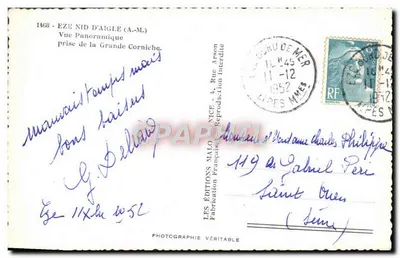 1468 - EZE NID D'AIGLE (A.-M.)
Vue Panoramique
prise de la Grande Corniche.
Mauvais temps mais
bons baisers
G.
Eze 11 Xbre 1952
LES ÉDITIONS MALO NICE - 4, Rue Arson
Fabrication Française Reproduction Interdite
BORD DE MER
11-12
1952
ALPES MMES
RF
Monsieur et Madame Charles Philippe
119 Gabriel Péri
Saint Ouen
(Seine)
PHOTOGRAPHIE VÉRITABLE